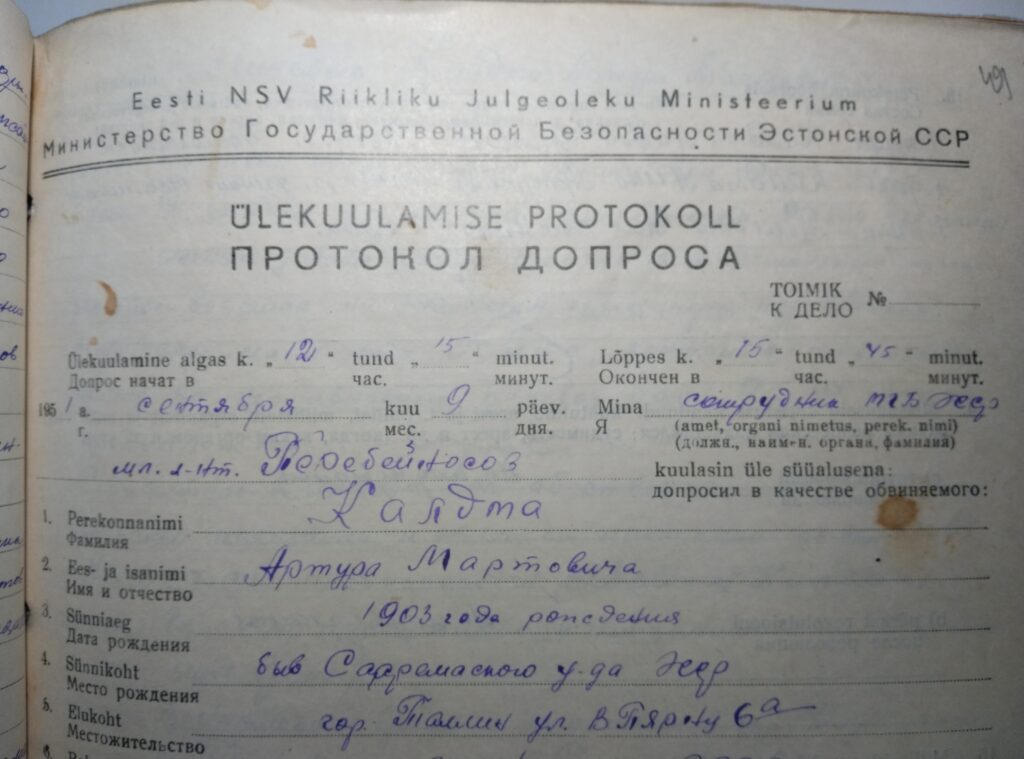 491
Eesti NSV Riikliku Julgeoleku Ministeerium
Министерство Государственной Безопасности Эстонской ССР
ÜLEKUULAMISE PROTOKOLL
ПРОТОКОЛ ДОПРОСА
TOIMIK
К ДЕЛО №
Ülekuulamine algas k. „ 12 “ tund „ 15 “ minut. Lõppes k. „ 15 “ tund „ 45 “ minut.
Допрос начат в час. минут. Окончен в час. минут.
1951 a. сентября kuu 9 päev. Mina сотрудник
г. мес. дня. Я (amet, organi nimetus, perek. nimi)
(должн., наимен. органа, фамилия)
мл. л-нт. kuulasin üle süüalusena:
допросил в качестве обвиняемого:
1. Perekonnanimi
Фамилия
2. Ees- ja isanimi Артура Мартовича
Имя и отчество
3. Sünniaeg 1903 года рождения
Дата рождения
4. Sünnikoht быв у-да
Место рождения
5. Elukoht гор. Таллин ул. В Пярну 6а
Местожительство
6.